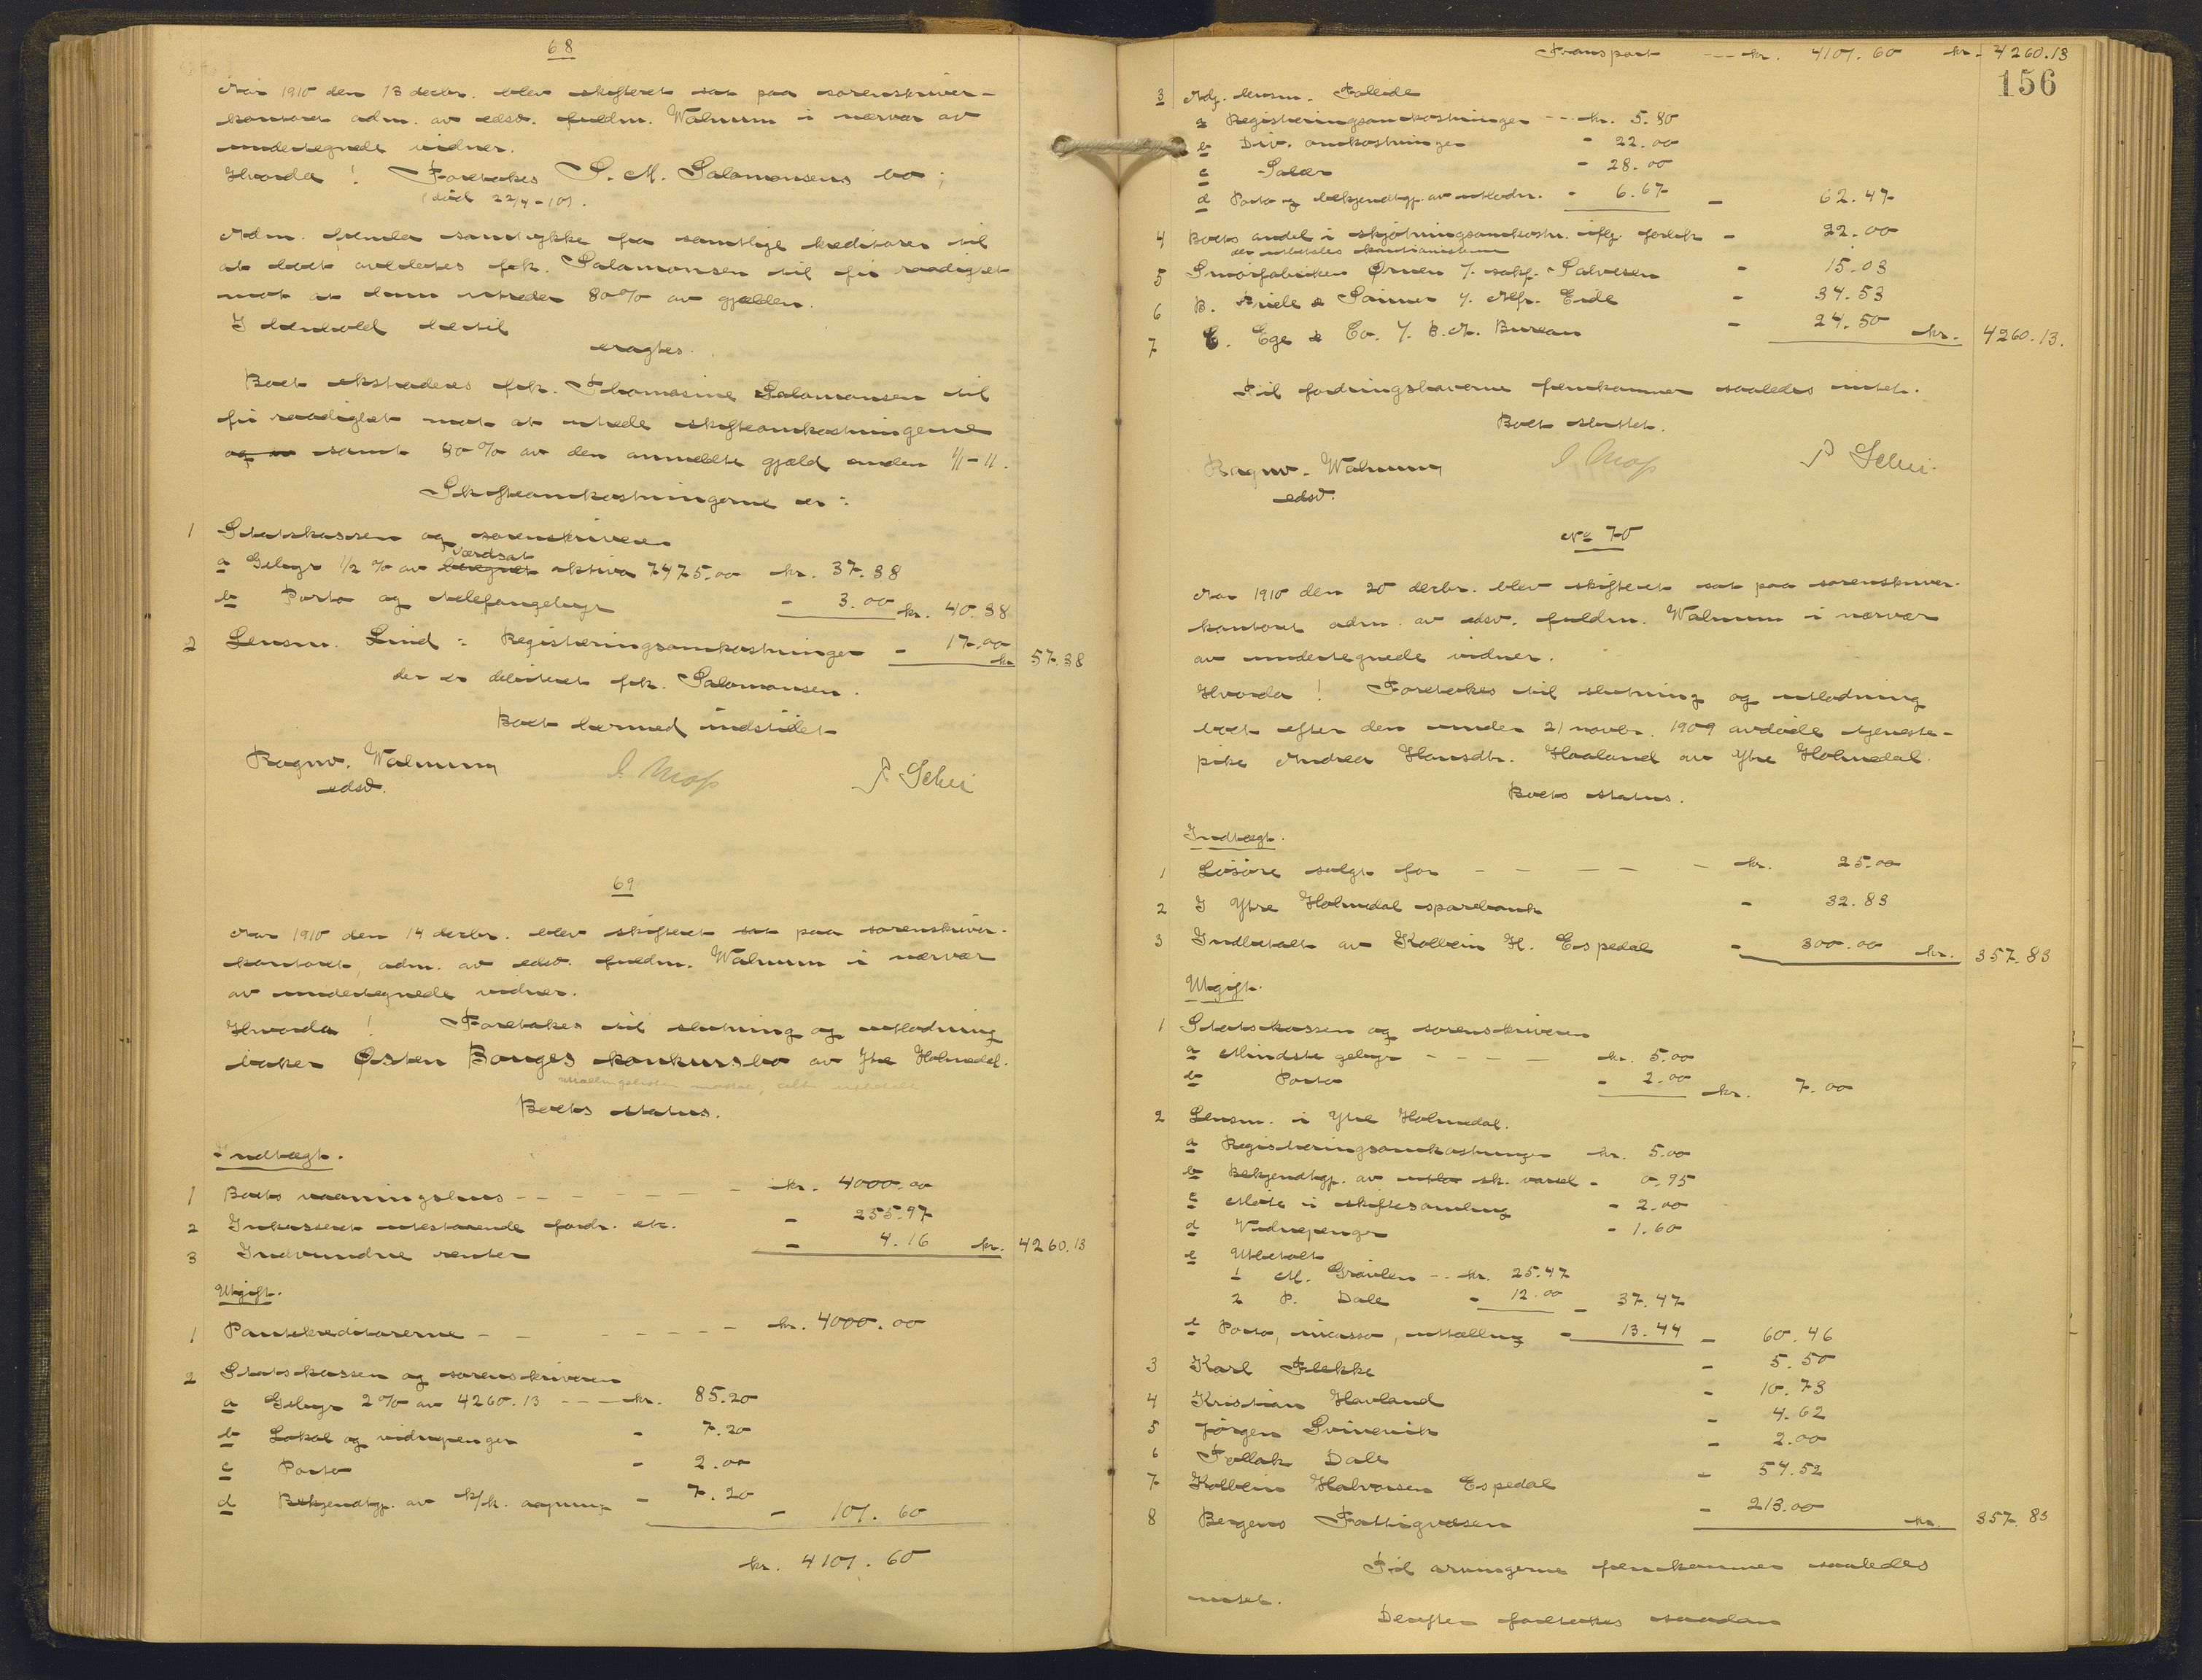 68
Aar 1910 den 13 decbr. blev skifteret sat paa sorenskriver-
kontoret adm. av edsv. fuldm. Walnum i nærvær av
undertegnede vidner.
Hvorda! Foretokes S. M. Salamonsens bo;
(död 22/4-10).
Adm. fremla samtykke fra samtlige kreditorer til
at boet overlates frk. Salamonsen til fri raadighet
mot at hun utreder 80% av gjælden.
I henhold hertil
eragtes.
Boet ekstraderes frk. Thomasine Salamonsen til
fri raadighet mot at utrede skifteomkostningerne
og av samt 80% av den anmeldte gjæld inden 1/1-11.
Skifteomkostningerne er:
1 Statskassen og sorenskriveren
værdsat
a Gebyr 1/2 % av beregnet aktiva 7475.00 kr. 37.38
b Porto og telefongebyr - 3.00 kr. 40.38
2 Lensm. Lind: Registreringsomkostninger - 17.00
kr. 57.38
der er debiteret frk. Salamonsen.
Boet hermed indstillet
Ragnv. Walnum
edsv.
P Schei
69
Aar 1910 den 14 decbr. blev skifteret sat paa sorenskriver-
kontoret, adm. av edsv. fuldm. Walnum i nærvær
av undertegnede vidner.
Hvorda! Foretokes til slutning og utlodning
baker Østen Bauges konkursbo av Ytre Holmedal.
utbetalt
Boets status.
Indtægt.
1 Boets vaaningshus - - - - - - kr. 4000.00
2 Inkasseret utestaaende fordr. etc. - 255.97
3 Indvundne renter - 4.16 kr. 4260.13
Utgift.
1 Pantekreditorerne - - - - - - kr. 4000.00
2 Statskassen og sorenskriveren
a Gebyr 2% av 4260.13 - - - kr. 85.20
b Lokal og vidnepenger - 7.20
c Porto - 2.00
d Bekjendtgj. av k/k. aapning - 7.20
- 101.60
kr. 4101.60
Transport - - kr. 4101.60 kr. 4260.13
156
3 Adj. lensm. Taleide
a Registreringsomkostninger - - kr. 5.80
b Div. omkostninger - 22.00
c Salær - 28.00
d Porto og bekjendtgj. av utlodn. - 6.67 - 62.47
4 Boets andel i skjøtningsomkostn. ifg. forlik - 22.00
der utbetales
5 Smørfabriken Ørnen v. sakf. Salvesen - 15.03
6 B. Friele & Sønner v. Alfr. Eide - 34.53
7 C. Ege & Co. v. B. A. Bureau - 24.50 kr. 4260.13.
Til fordringshaverne fremkommer saaledes intet.
Boet sluttet.
Ragnv. Walnum
edsv.
P Schei
No 70
Aar 1910 den 20 decbr. blev skifteret sat paa sorenskriver-
kontoret adm. av edsv. fuldm. Walnum i nærvær
av undertegnede vidner.
Hvorda! Foretokes til slutning og utlodning
boet efter den under 21 novbr. 1909 avdøde tjeneste-
pike Andrea Hansdtr. Haaland av Ytre Holmedal.
Boets status.
Indtægt.
1 Løsøre solgt for - - - - - kr. 25.00
2 I Ytre Holmedal sparebank - 32.83
3 Indbetalt av Kolbein H. Espedal - 300.00 kr. 357.83
Utgift.
1 Statskassen og sorenskriveren
a Mindste gebyr - - - - kr. 5.00
b Porto - 2.00 kr. 7.00
2 Lensm. i Ytre Holmedal.
a Registreringsomkostninger kr. 5.00
b Bekjendtgj. av utlo sk. varsel - 0.95
c Møte i skiftesamling - 2.00
d Vidnepenger - 1.60
e Utbetalt
1 M. Gravlen - - kr. 25.47
2 P. Dale - 12.00 - 37.47
f Porto, incasso, uttælling - 13.44 - 60.46
3 Karl Flekke - 5.50
4 Kristian Havland - 10.73
5 Jørgen Svinevik - 4.62
6 Tollak Dale - 2.00
7 Kolbein Halvorsen Espedal - 54.52
8 Bergens Fattigvæsen - 213.00 kr. 357.83
Til arvingerne fremkommer saaledes
intet.
Derefter foretokes saadan